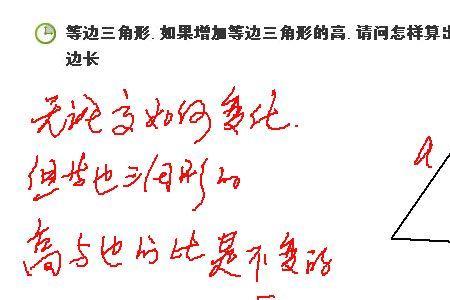 等边三角形. 如果增加等边三角形的高. 请问怎样算出
边长
无论高如何变化.
但等边三角形的
a
高与边的比是不变的